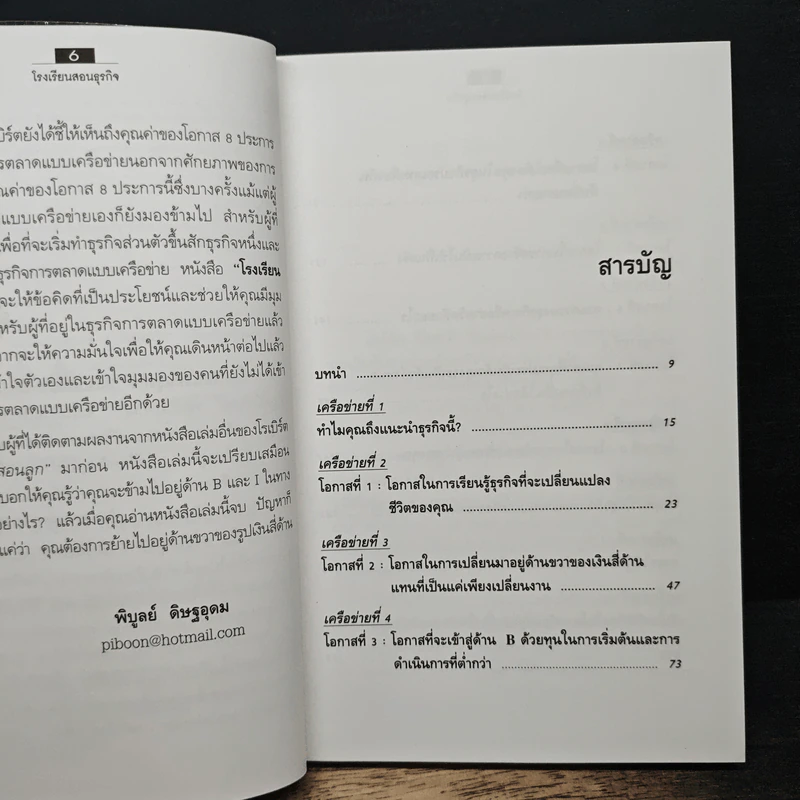 6
โรงเรียนสอนธุรกิจ
บิร์ตยังได้ชี้ให้เห็นถึงคุณค่าของโอกาส 8 ประการ
รตลาดแบบเครือข่ายนอกจากศักยภาพของการ
ณค่าของโอกาส 8 ประการนี้ซึ่งบางครั้งแม้แต่ผู้
แบบเครือข่ายเองก็ยังมองข้ามไป สำหรับผู้ที่
พื่อที่จะเริ่มทำธุรกิจส่วนตัวขึ้นสักธุรกิจหนึ่งและ
ธุรกิจการตลาดแบบเครือข่าย หนังสือ “โรงเรียน
จะให้ข้อคิดที่เป็นประโยชน์และช่วยให้คุณมีมุม
หรับผู้ที่อยู่ในธุรกิจการตลาดแบบเครือข่ายแล้ว
ากจะให้ความมั่นใจเพื่อให้คุณเดินหน้าต่อไปแล้ว
ข้าใจตัวเองและเข้าใจมุมมองของคนที่ยังไม่ได้เข้า
รตลาดแบบเครือข่ายอีกด้วย
บผู้ที่ได้ติดตามผลงานจากหนังสือเล่มอื่นของโรเบิร์ต
สอนลูก” มาก่อน หนังสือเล่มนี้จะเปรียบเสมือน
บอกให้คุณรู้ว่าคุณจะข้ามไปอยู่ด้าน B และ I ในทาง
อย่างไร? แล้วเมื่อคุณอ่านหนังสือเล่มนี้จบ ปัญหาก็
แค่ว่า คุณต้องการย้ายไปอยู่ด้านขวาของรูปเงินสี่ด้าน
พิบูลย์ ดิษฐอุดม
piboon@hotmail.com
สารบัญ
บทนำ 9
เครือข่ายที่ 1
ทำไมคุณถึงแนะนำธุรกิจนี้? 15
เครือข่ายที่ 2
โอกาสที่ 1 : โอกาสในการเรียนรู้ธุรกิจที่จะเปลี่ยนแปลง
ชีวิตของคุณ 23
เครือข่ายที่ 3
โอกาสที่ 2 : โอกาสในการเปลี่ยนมาอยู่ด้านขวาของเงินสี่ด้าน
แทนที่เป็นแค่เพียงเปลี่ยนงาน 47
เครือข่ายที่ 4
โอกาสที่ 3 : โอกาสที่จะเข้าสู่ด้าน B ด้วยทุนในการเริ่มต้นและการ
ดำเนินการที่ต่ำกว่า 73